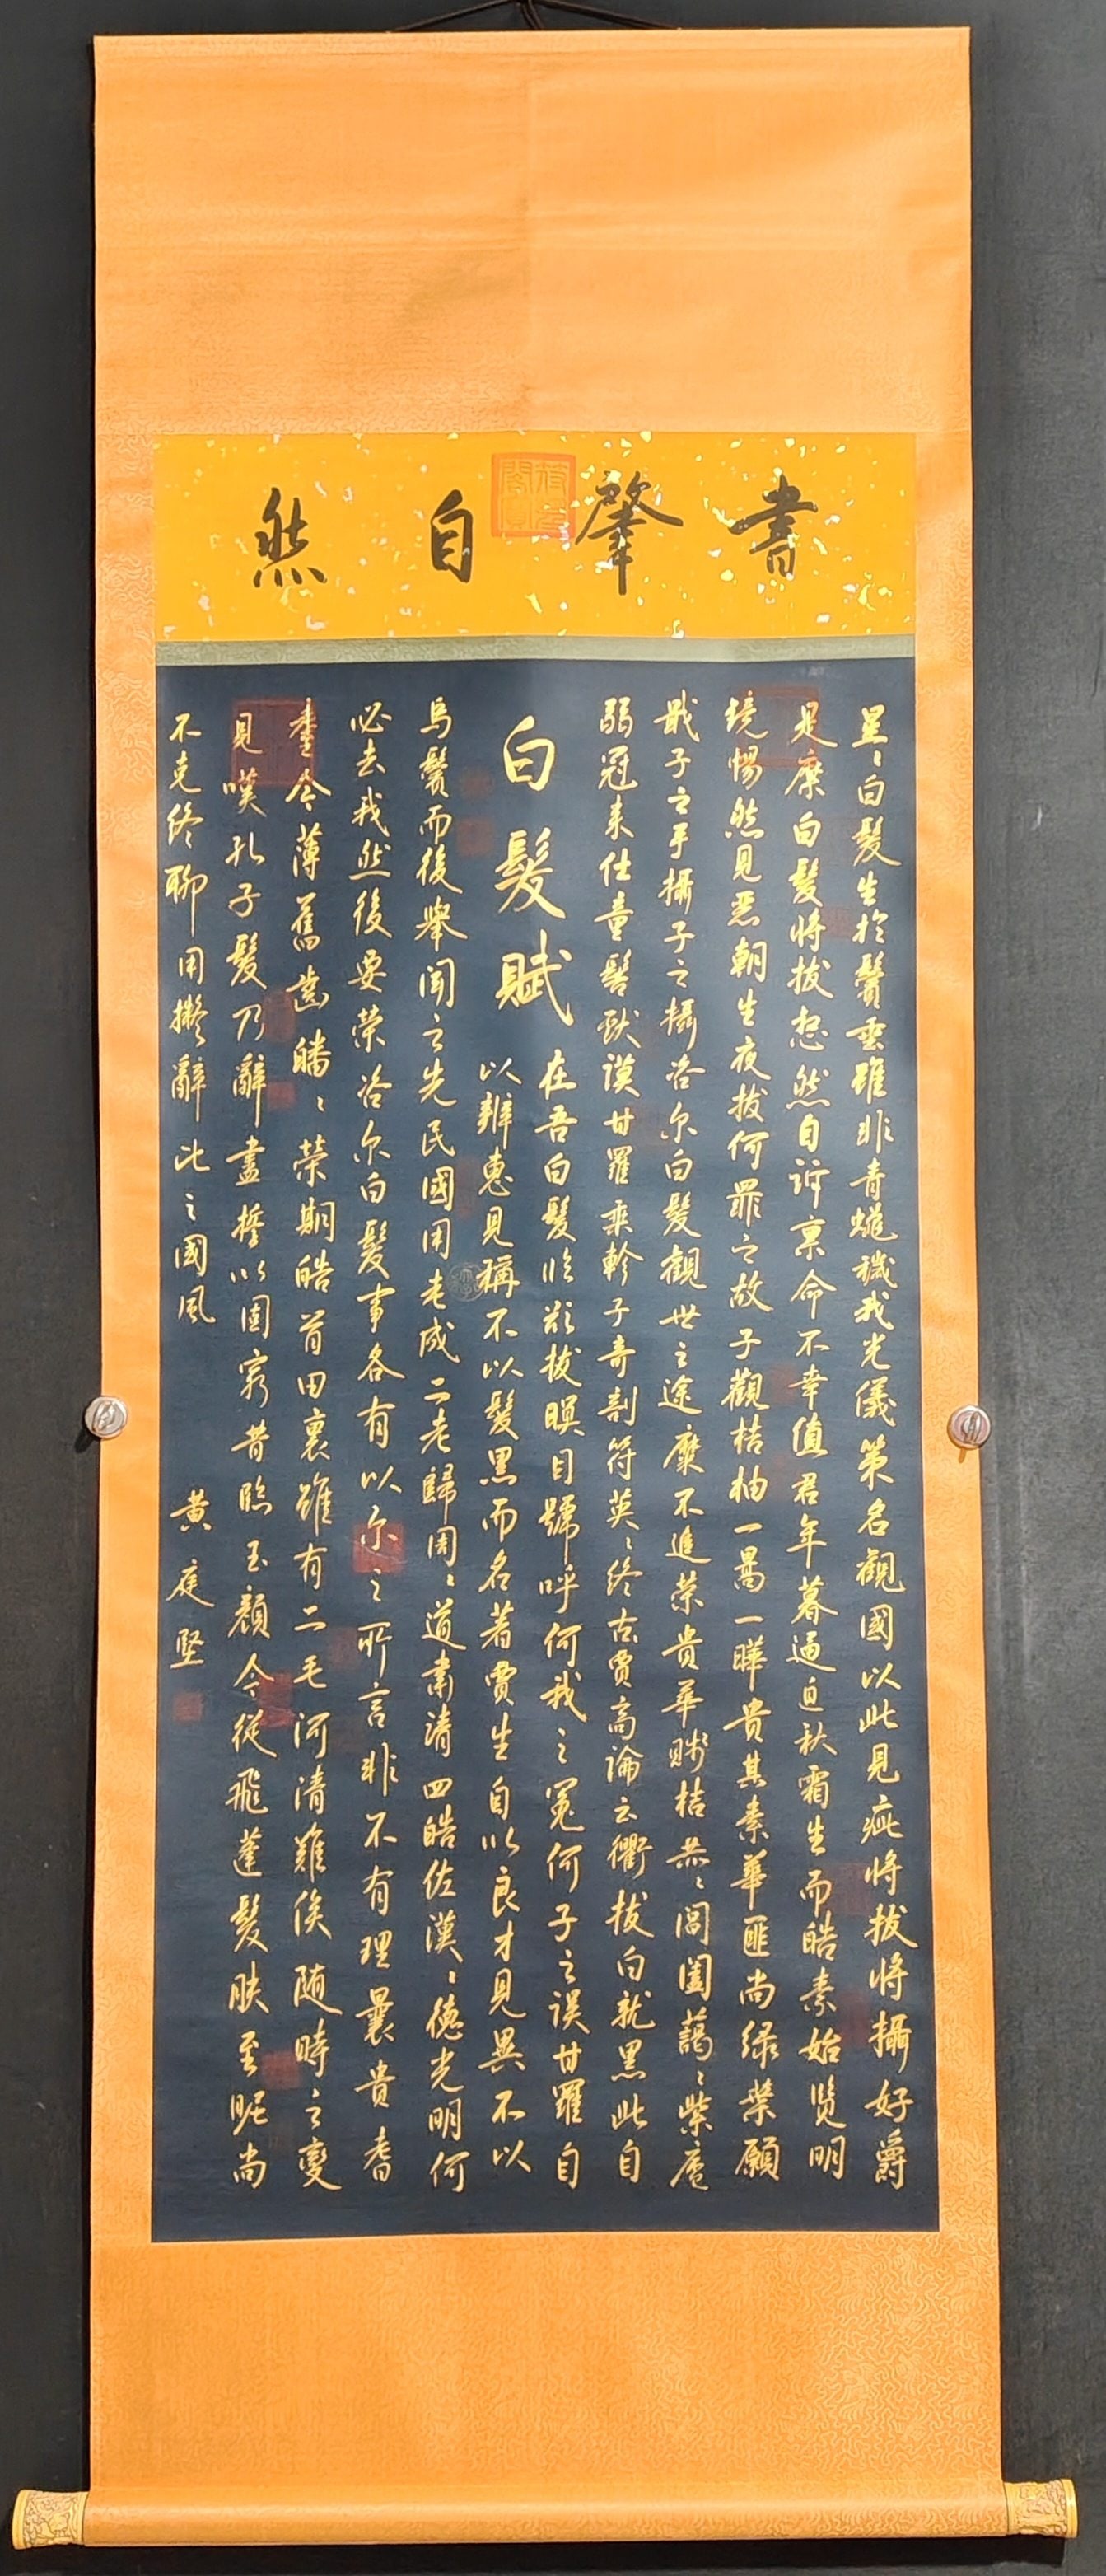 書肇自然
星〻白髮生於鬢垂雖非青蠅穢我光儀策名觀國以此見疵將拔將攝好爵
是縻白髮將拔惄然自訴稟命不幸值君年暮逼迫秋霜生而皓素始覽明
鏡惕然見惡朝生夜拔何罪之故子觀桔柚一暠一曄貴其素華匪尚綠葉願
戢子之手攝子之攝咨尔白髮觀世之途縻不追榮貴華賤桔赫〻閶闔藹〻紫廬
弱冠來仕童髫獻謨甘羅乘軫子奇剖符英〻終古賈高論云衢拔白就黑此自
白髮賦
在吾白髮臨欲拔瞑目號呼何我之冤何子之誤甘羅自
以辨惠見稱不以髮黑而名著賈生自以良才見異不以
烏鬢而後舉聞之先民國用老成二老歸周〻道肅清四皓佐漢〻德光明何
必去我然後要榮咨尔白髮事各有以尔之所言非不有理曩貴耆
耋今薄舊齒皤〻榮期皓首田裏雖有二毛河清難俟隨時之變
見嘆孔子髮乃辭盡誓以固窮昔臨玉顏今從飛蓬髮肤至昵尚
不克終聊用擬辭比之國風
黃庭堅